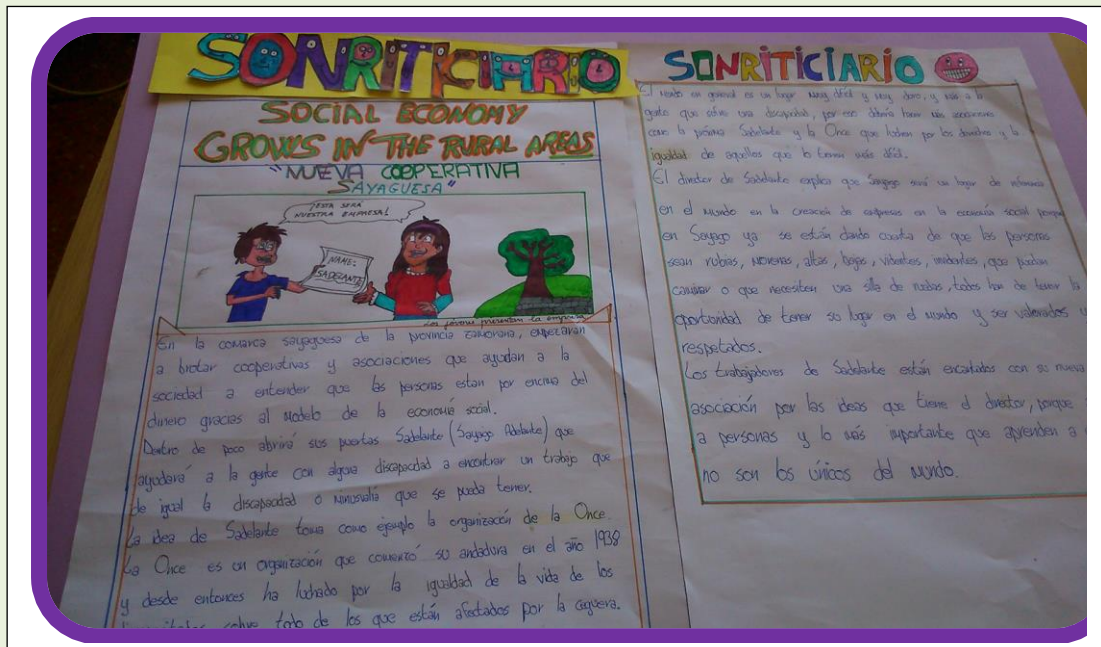 SONRITICIARIO
SOCIAL ECONOMY
GROWS IN THE RURAL AREAS
"NUEVA COOPERATIVA
SAYAGUESA"
¡ESTA SERÁ
NUESTRA EMPRESA!
NAME:
SADELANTE
Los jóvenes presentan la empresa
En la comarca sayaguesa de la provincia zamorana, empezaran
a brotar cooperativas y asociaciones que ayudan a la
sociedad a entender que las personas estan por encima del
dinero gracias al modelo de la economía social.
Dentro de poco abrirá sus puertas Sadelante (Sayago Adelante) que
ayudará a la gente con alguna discapacidad a encontrar un trabajo que
de igual la discapacidad o minusvalía que se pueda tener.
La idea de Sadelante toma como ejemplo la organización de la Once.
La Once es un organización que comenzó su andadura en el año 1938
y desde entonces ha luchado por la igualdad de la vida de los
sobre todo de los que están afectados por la ceguera.
SONRITICIARIO
El mundo en general es un lugar muy difícil y muy duro, y más a la
gente que sufre una discapacidad, por eso debería haber más asociaciones
como la próxima Sadelante y la Once que luchen por los derechos y la
igualdad de aquellos que lo tienen más difícil.
El director de Sadelante explica que Sayago será un lugar de referencia
en el mundo en la creación de empresas en la economía social porque
en Sayago ya se están dando cuenta de que las personas
sean rubias, morenas, altas, bajas, videntes, invidentes, que puedan
caminar o que necesiten una silla de ruedas, todos han de tener la
oportunidad de tener su lugar en el mundo y ser valorados y
respetados.
Los trabajadores de Sadelante están encantados con su nueva
asociación por las ideas que tiene el director, porque
a personas y lo más importante que aprenden a
no son los únicos del mundo.